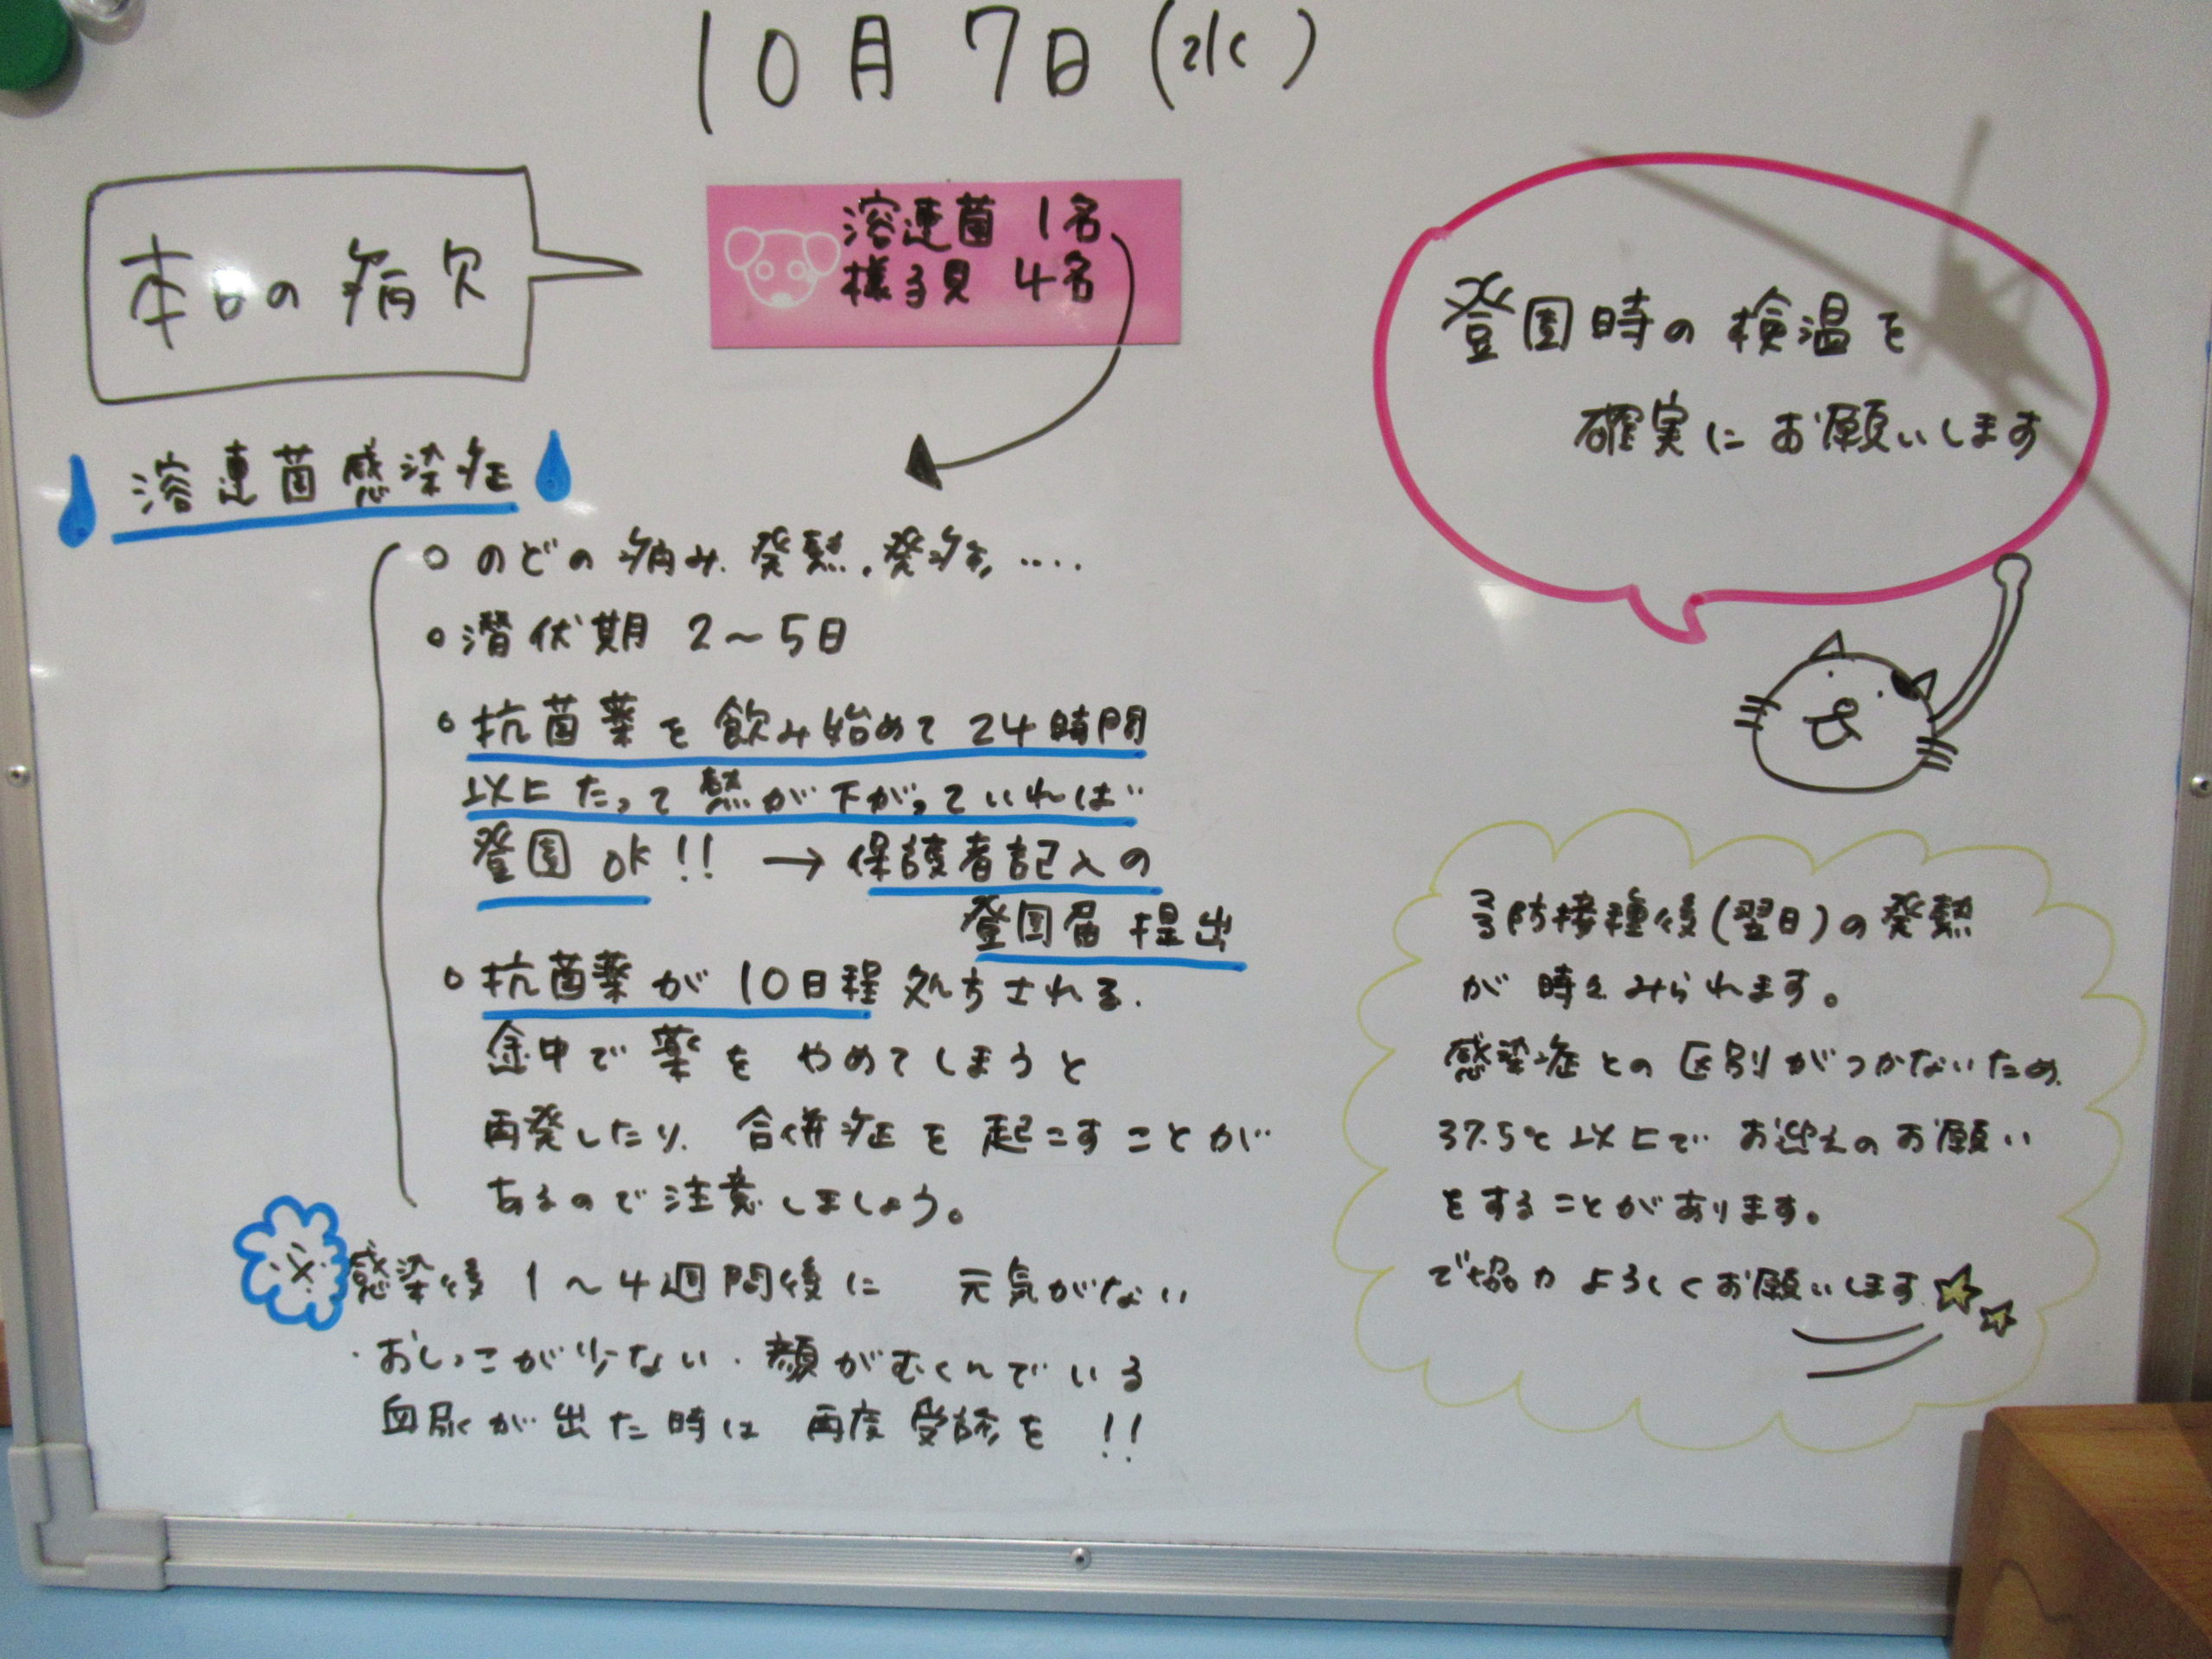 10月7日(水)
本日の病欠
溶連菌 1名
様子見 4名
溶連菌感染症
○ のどの痛み、発熱、発疹、‥‥
○ 潜伏期 2〜5日
○ 抗菌薬を飲み始めて24時間
以上たって熱が下がっていれば
登園OK!! → 保護者記入の
登園届提出
○ 抗菌薬が10日程処方される。
途中で薬をやめてしまうと
再発したり、合併症を起こすことが
あるので注意しましょう。
※感染後1〜4週間後に 元気がない
・おしっこが少ない・顔がむくんでいる
血尿が出た時は 再度受診を!!
登園時の検温を
確実にお願いします
予防接種後(翌日)の発熱
が時々みられます。
感染症との区別がつかないため、
37.5℃以上でお迎えのお願い
をすることがあります。
ご協力よろしくお願いします